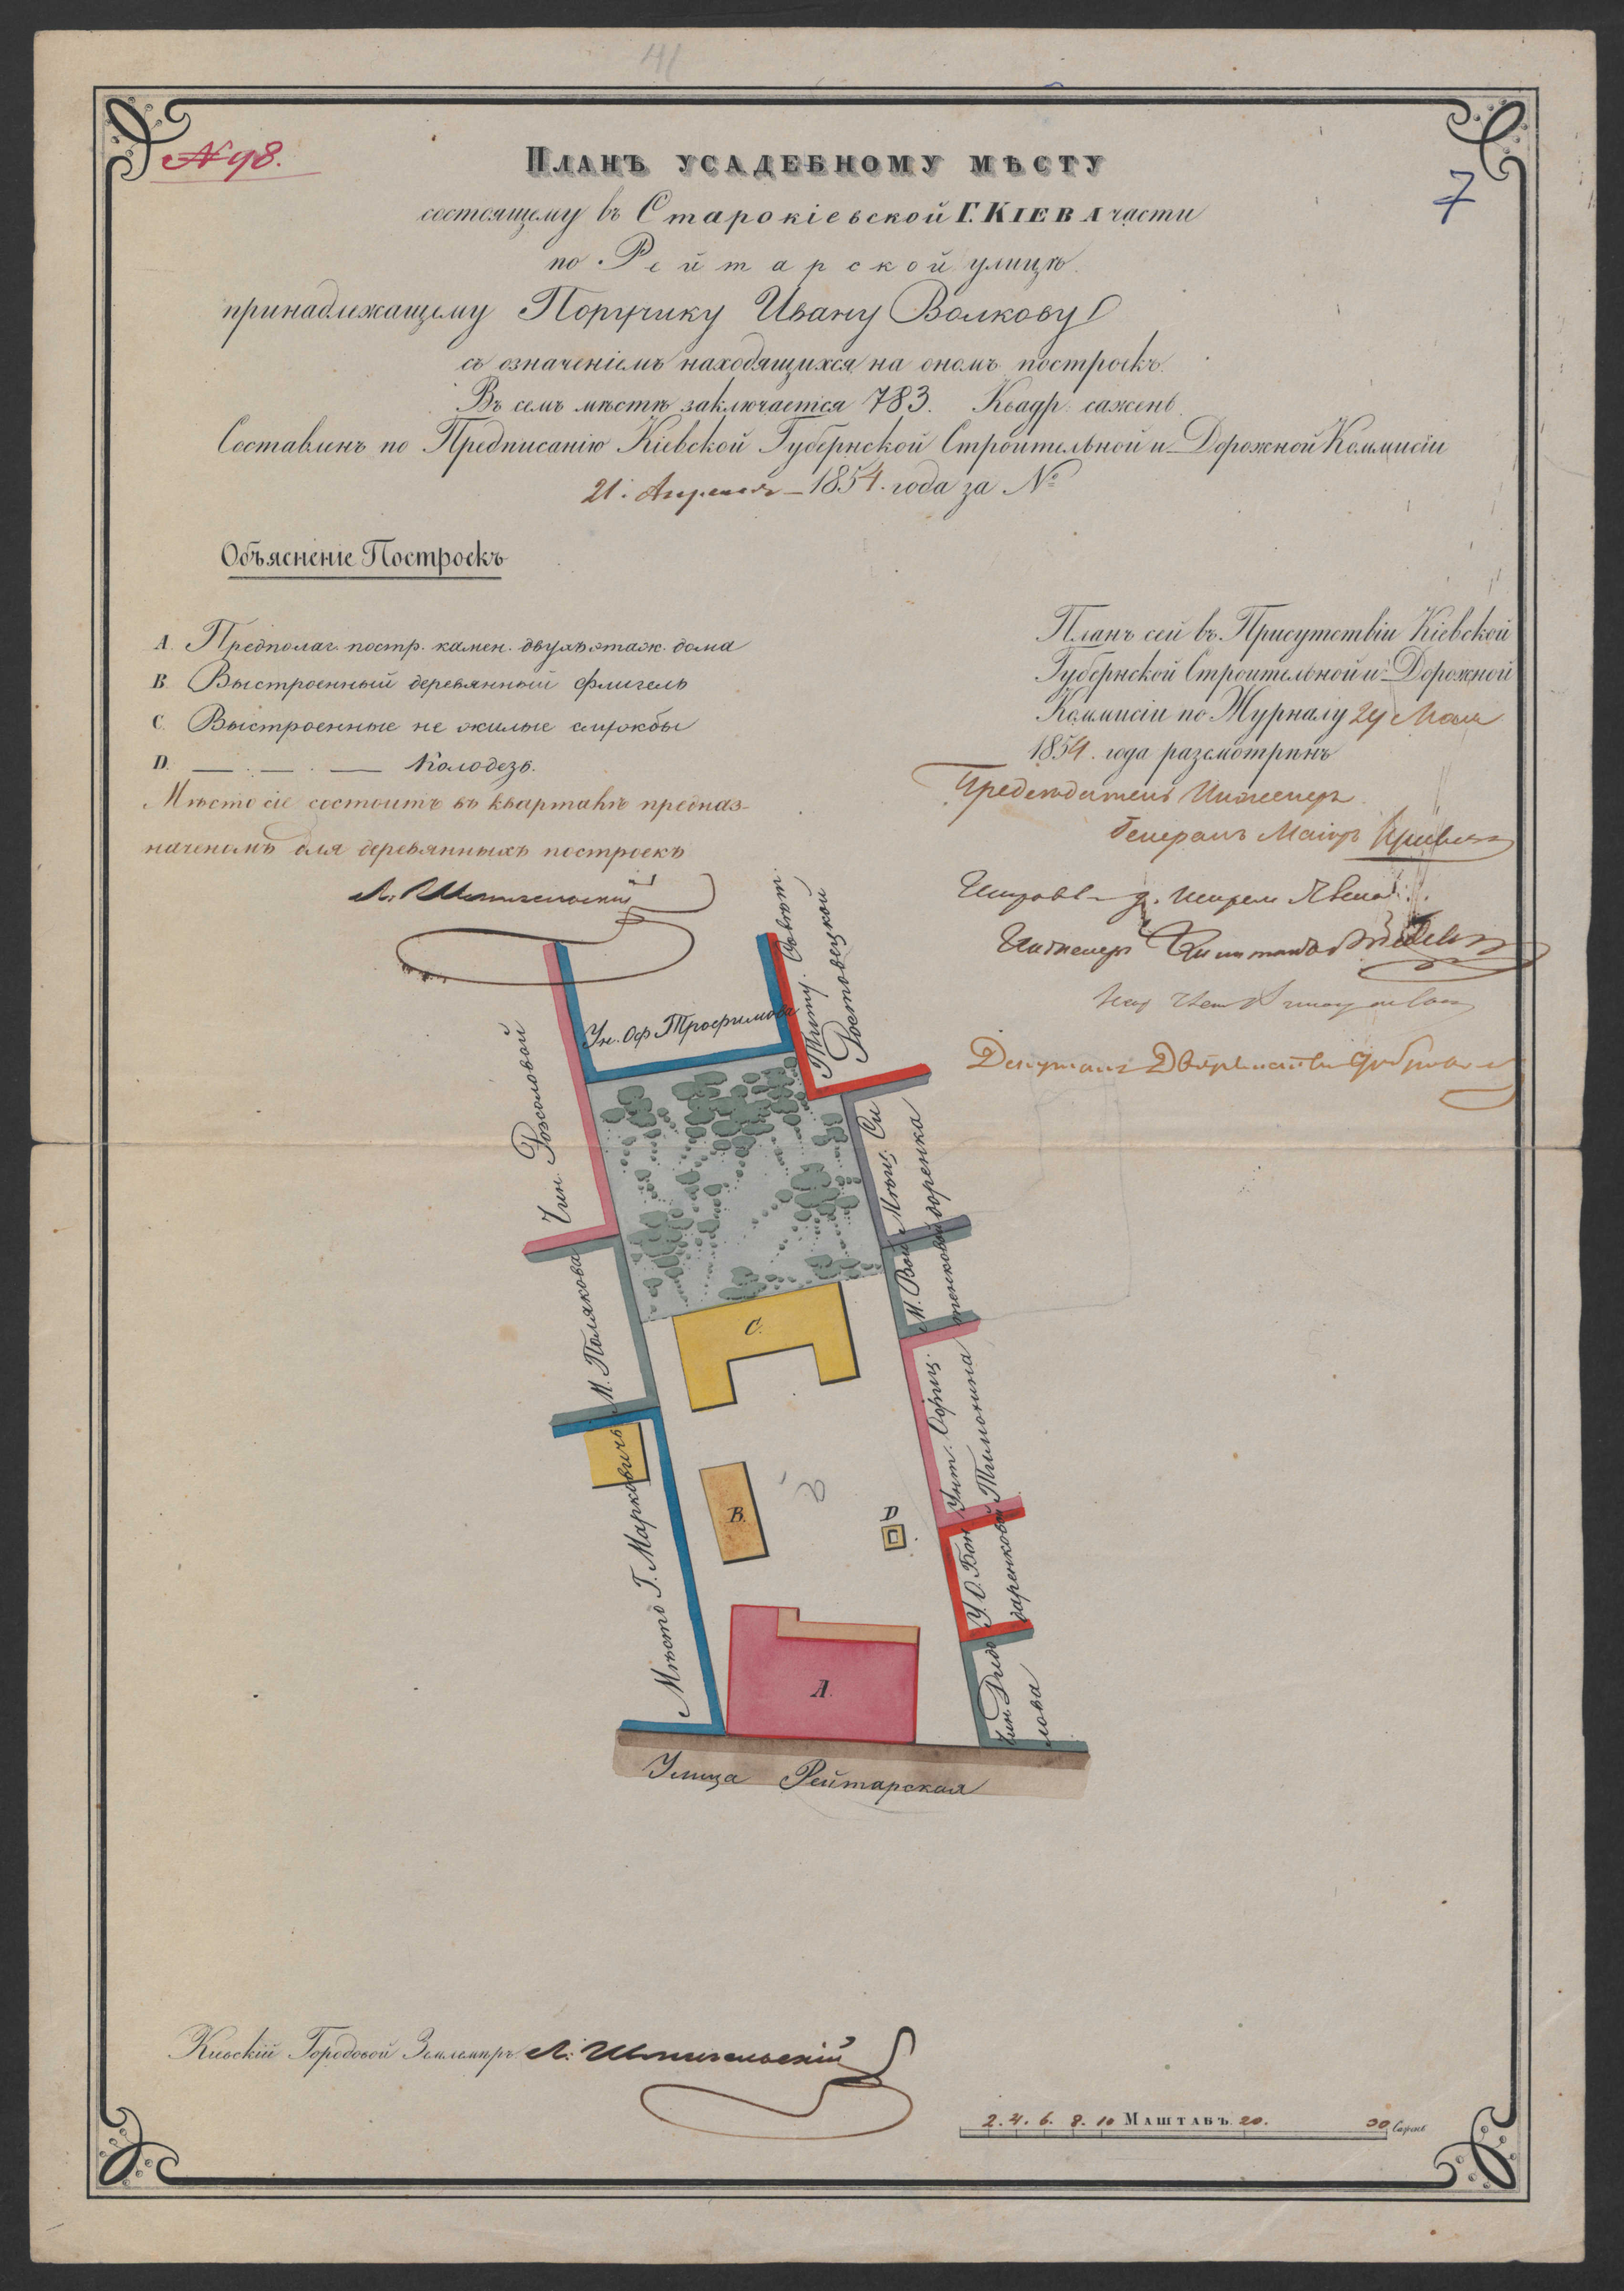 № 98.
7
Планъ усадебному мѣсту
состоящему въ Старокіевской Г. Кіева части
по Рейтарской улицѣ
принадлежащему Поручику Ивану Волкову
съ означеніемъ находящихся на ономъ построекъ.
Въ семъ мѣстѣ заключается 783. Квадр. сажень.
Составленъ по Предписанію Кіевской Губернской Строительной и Дорожной Коммисіи
21. Апреля 1854. года за №
Объясненіе Построекъ
A. Предполаг. постр. камен. двухъэтаж. дома
B. Выстроенный деревянный флигель
C. Выстроенные не жилые службы
D. — . — . — Колодезь.
Мѣсто сіе состоитъ въ кварталѣ предназ-
наченомъ для деревянныхъ построекъ
Планъ сей въ Присутствіи Кіевской
Губернской Строительной и Дорожной
Коммисіи по Журналу 24 Мая
1854. года разсмотренъ
Председатель Инженеръ
Генералъ Маіоръ
Инженеръ
Депутатъ Дворянства
Чин. Розсоловой
Ун. Оф Трофимова
Титу. Совѣт.
Ростовецкой
М. Полякова
Мѣщ. Си
доренка
М. Вой
тенковой
Мѣсто Г. Марковичъ
Унт. Офиц.
Тимонина
У. О. Бон
даренковой
Чин. Дидо
лова
C.
B.
D
A.
Улица Рейтарская
Кіевскій Городовой Землемѣръ
2. 4. 6. 8. 10 Маштабъ. 20. 30 Саженъ